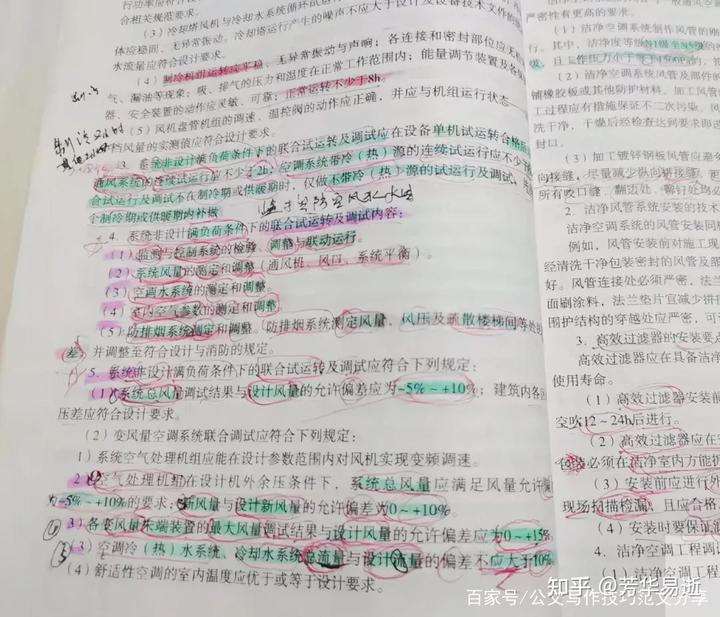 行功率应
合相关规范要求。
(3) 冷却塔风机与冷却水系统循环试运行
体应稳固、无异常振动，冷却塔运行产生的噪声不应大于设计及设备技术文件的
水流量应符合设计要求。
(4) 制冷机组运转应平稳、无异常振动与声响；各连接和密封部位应无
气、漏油等现象；吸、排气的压力和温度在正常工作范围内；能量调节装置及各
器、安全装置的动作应灵敏、可靠；正常运转不少于8h。
(5) 风机盘管机组的调速、温控阀的动作应正确，并应与机组运行状态一
档风量的实测值应符合设计要求。
3. 系统非设计满负荷条件下的联合试运转及调试应在设备单机试运转合格后
通风系统的连续试运行应不少于2h，空调系统带冷（热）源的连续试运行应不少于
合试运行及调试不在制冷期或供暖期时，仅做不带冷（热）源的试运行及调试，
个制冷期或供暖期内补做
4. 系统非设计满负荷条件下的联合试运转及调试内容：
(1) 监测与控制系统的检验、调整与联动运行。
(2) 系统风量的测定和调整（通风机、风口、系统平衡）。
(3) 空调水系统的测定和调整。
(4) 室内空气参数的测定和调整。
(5) 防排烟系统测定和调整。防排烟系统测定风量、风压及疏散楼梯间等处
差，并调整至符合设计与消防的规定。
5. 系统非设计满负荷条件下的联合试运转及调试应符合下列规定：
(1) 系统总风量调试结果与设计风量的允许偏差应为-5%~+10%；建筑内各
压差应符合设计要求。
(2) 变风量空调系统联合调试应符合下列规定：
1) 系统空气处理机组应能在设计参数范围内对风机实现变频调速。
2) 空气处理机组在设计机外余压条件下，系统总风量应满足风量允许偏
为-5%~+10%的要求；新风量与设计新风量的允许偏差为0~+10%。
3) 各变风量末端装置的最大风量调试结果与设计风量的允许偏差应为0~+15%
(3) 空调冷（热）水系统、冷却水系统总流量与设计流量的偏差不应大于10%
(4) 舒适性空调的室内温度应优于或等于设计要求。
严密性有更高的要求。
(1) 洁净空调系统制作风管的刚
行。其中，洁净度等级N1级至N5级的
级，且工作压力小于等于1500Pa的，按
(2) 洁净空调系统风管及部件的
铺橡胶板或其他防护材料。加工风管
工过程应有措施保证不二次污染。风
洗干净，干燥后经检查达到要求即进
封口。
(3) 加工镀锌钢板风管应避免
向接缝，尽量减少纵向拼接缝。更
所有咬口缝、翻边处、铆钉处均
2. 洁净风管系统安装的技术
洁净空调系统的风管安装同
例如，风管安装前对施工现
经清洗干净包装密封的风管及部
好。风管连接处必须严密，法兰
面刷涂料，法兰垫片宜减少拼接
围护结构的穿越处应严密，可
3. 高效过滤器的安装要点
高效过滤器应在具备洁净
使用寿命。
(1) 高效过滤器安装前
空吹12~24h后进行。
(2) 高效过滤器应在
包装必须在洁净室内方能拆
(3) 安装前应进行外
现场扫描检漏，且应合格
(4) 安装时要保证
4. 洁净空调工程调试
(1) 洁净空调工程
知乎 @芳华易逝
百家号/公文写作技巧范文分享